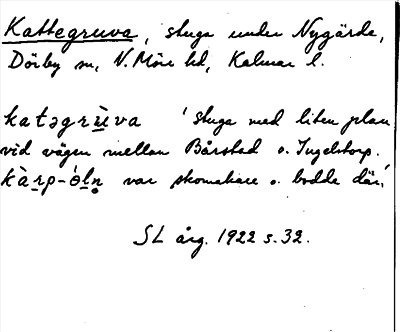 Kattegruva, stuga under Nygärde,
Dörby sn, N. Möre hd, Kalmar l.
katəgrùva 'stuga med liten plan
vid vägen mellan Bårstad o. Ingelstorp.
kàrp-óln var skomakare o. bodde där.'
SL årg. 1922 s. 32.